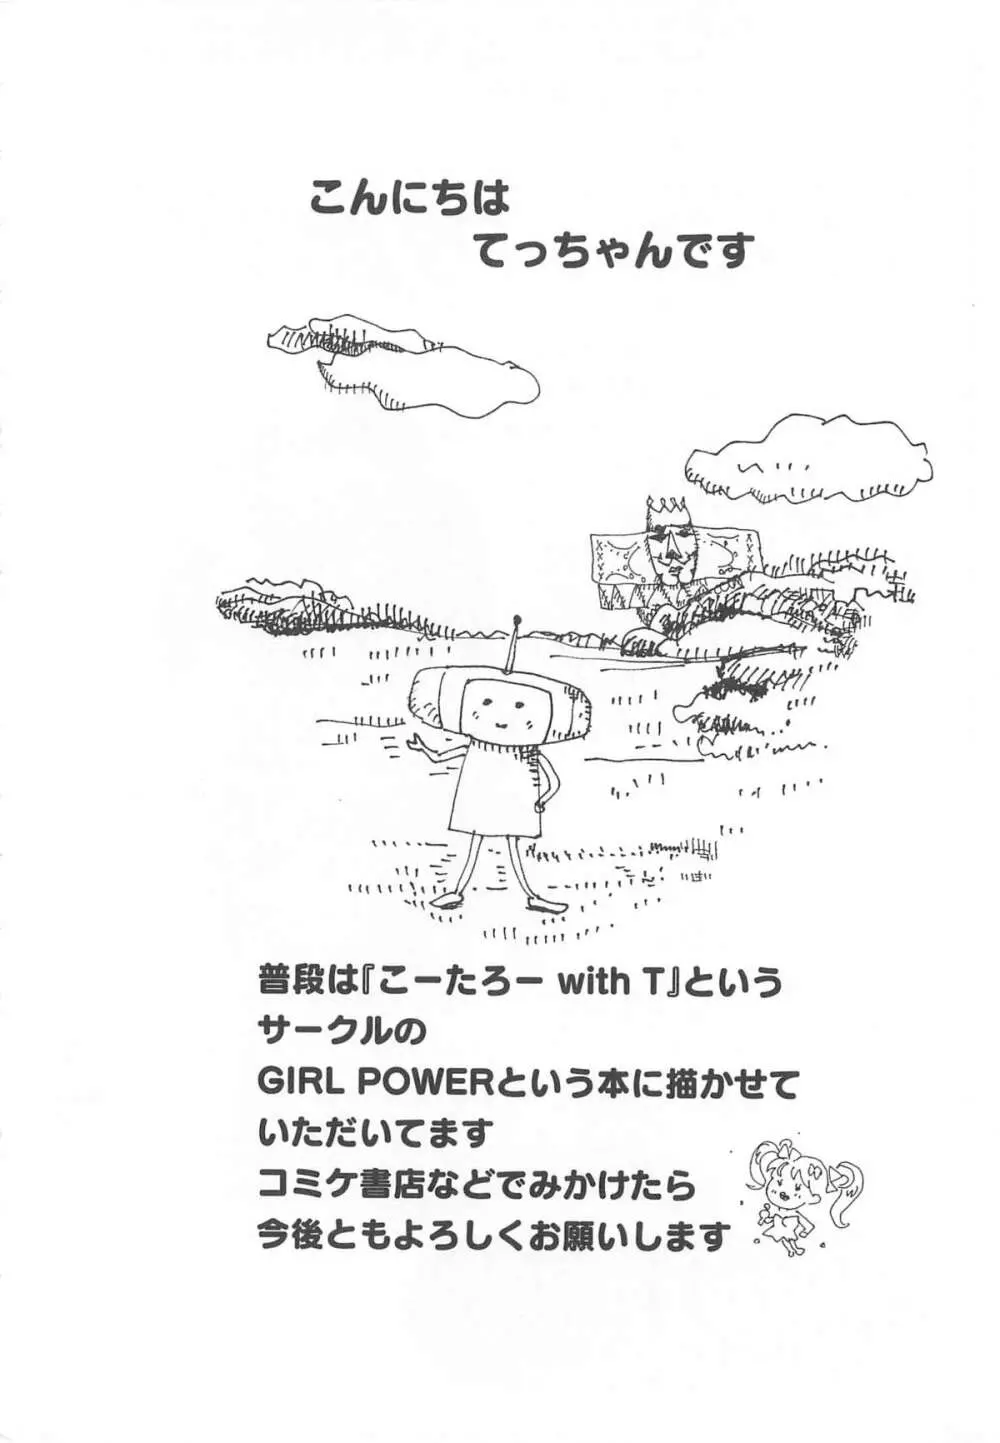 こんにちは
てっちゃんです
普段は『こーたろー with T』という
サークルの
GIRL POWERという本に描かせて
いただいてます
コミケ書店などでみかけたら
今後ともよろしくお願いします